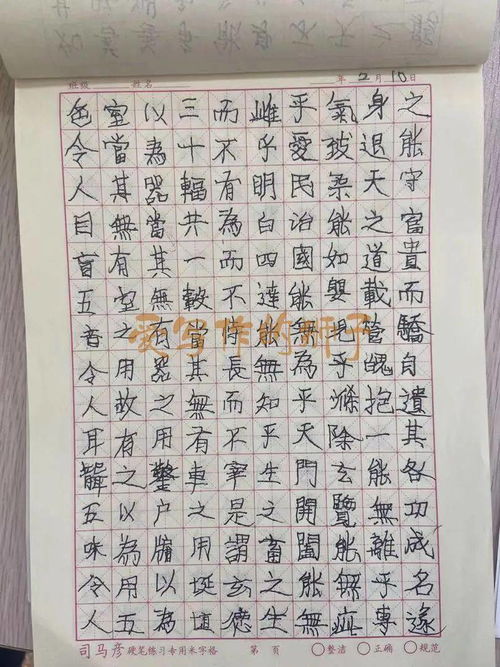 班级 姓名 年 2 月 10 日
之能守富貴而驕自遺其各功成名遂
身退天之道載營魄抱一能無離乎專
氣柔能如嬰兒乎滌除玄覽能無疵
乎愛民治國能無為乎天門開闔能無
雌乎明白四達能無知乎生之畜之生
而不有為而不恃長而不宰是謂玄德
三十輻共一轂當其無有車之用埏埴
以為器當其無有器之用鑿户牖以為
室當其無有室之用故有之以為用五
色令人目盲五音令人耳聾五味令人
爱写作的狮子
司马彦 硬笔练习专用米字格 第 页 ○整洁 ○正确 ○规范